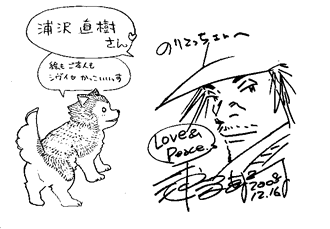 浦沢 直樹
さん♡
絵も ご本人も
シヴイせ かっこいいっす
のりてっちょんへ
Love&
Peace.
2008
12.16